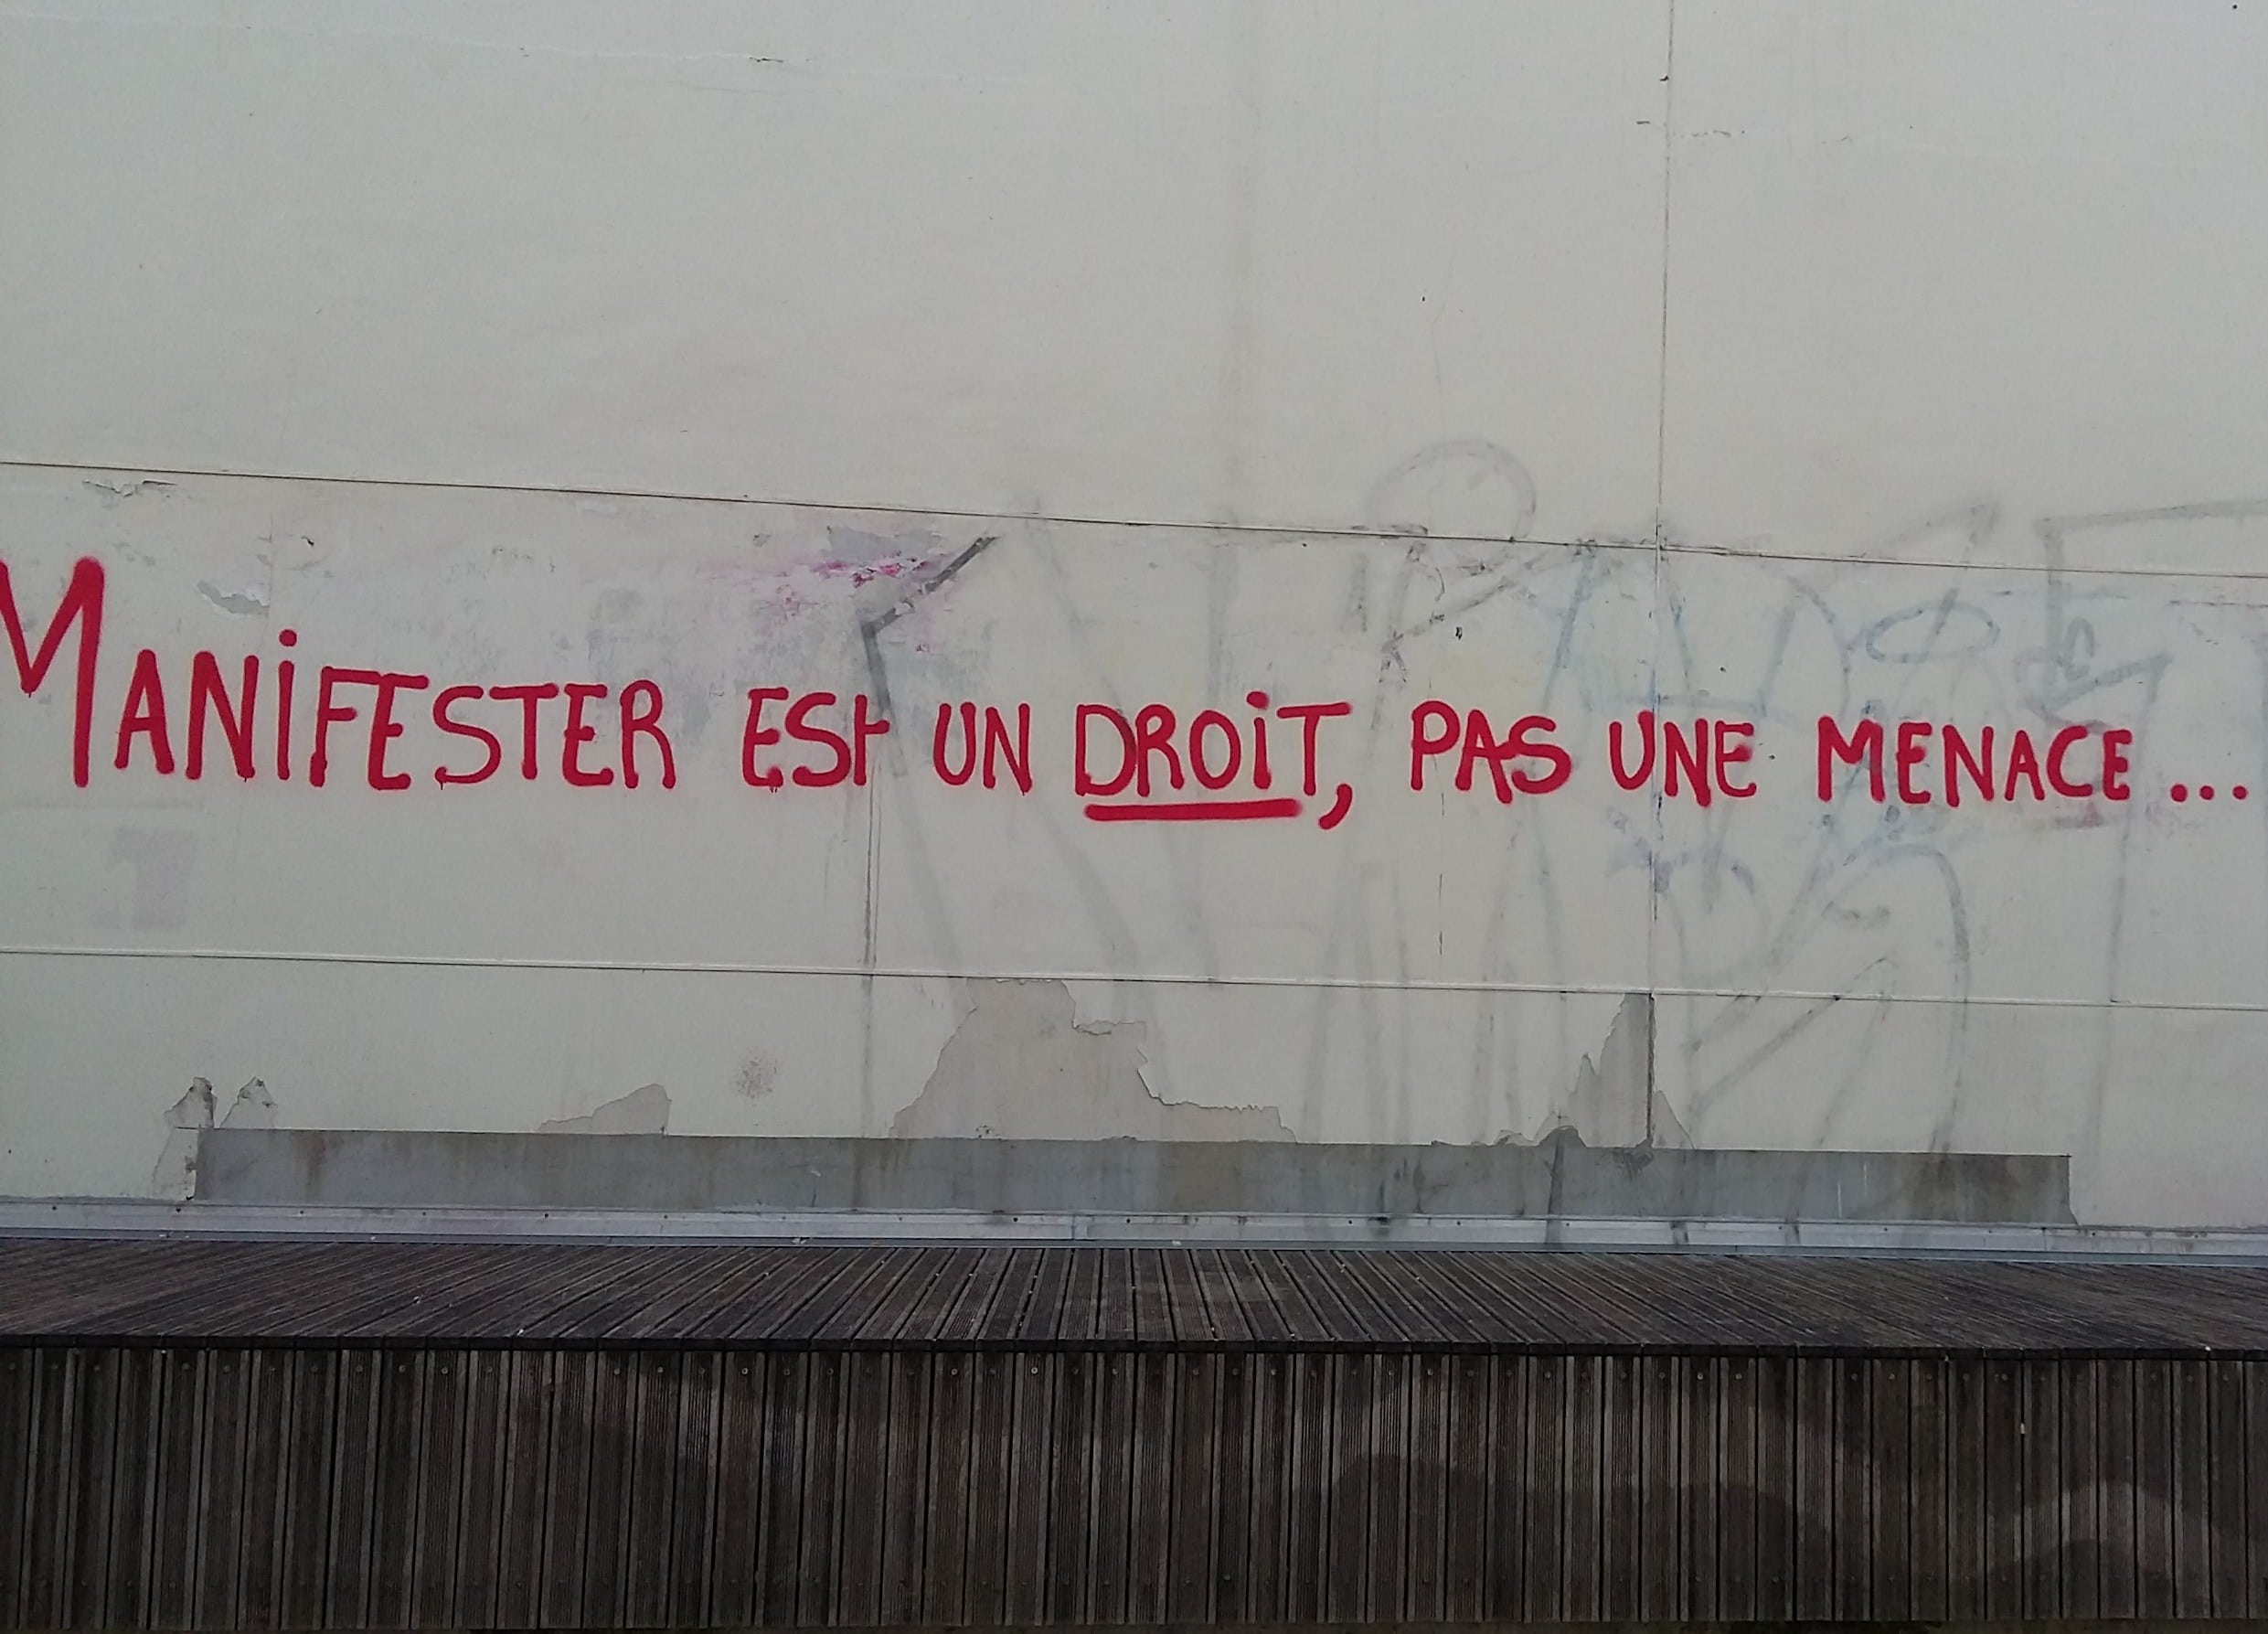 MANiFESTER EST UN DROiT, PAS UNE MENACE...